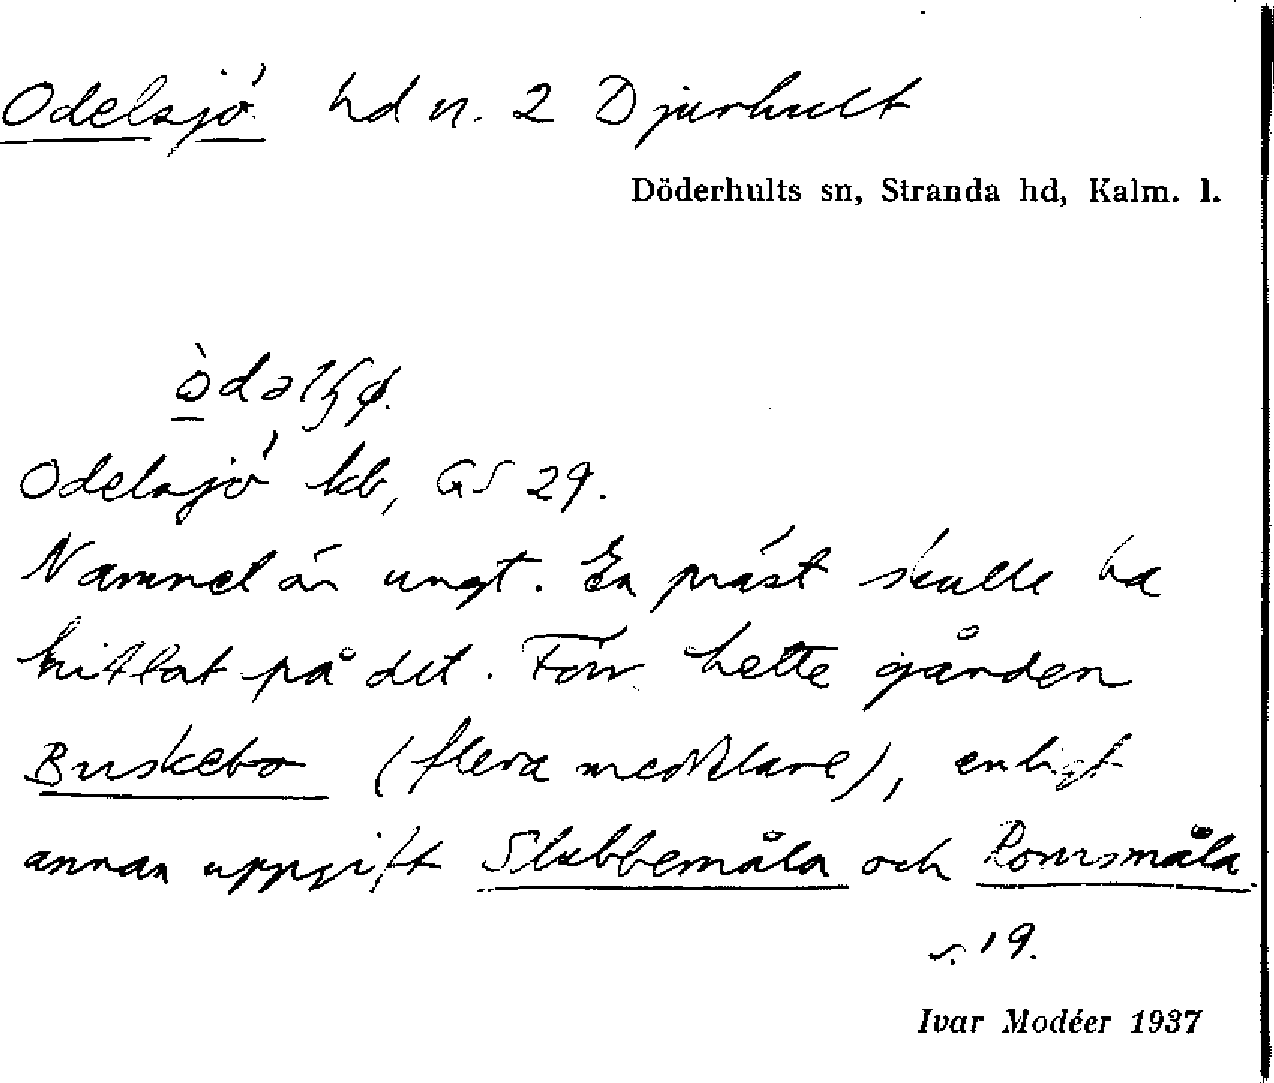 Odelsjö hd n. 2 Djurhult
Döderhults sn, Stranda hd, Kalm. l.
òdəlʃø.
Odelsjö kb, GS 29.
Namnet är ungt. En präst skulle ha
hittat på det. Förr hette gården
Buskebo (flera meddelare), enligt
annan uppgift Slubbemåla och
s. 19.
Ivar Modéer 1937